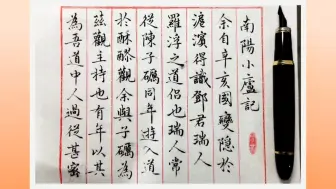 南陽小廬記
余自辛亥國變隱於
滬濱得識鄧君瑞人
羅浮之道侶也瑞人常
從陳子礪同年遊入道
於酥醪觀余與子礪為
主持也有年以其
為吾道中人過從甚密